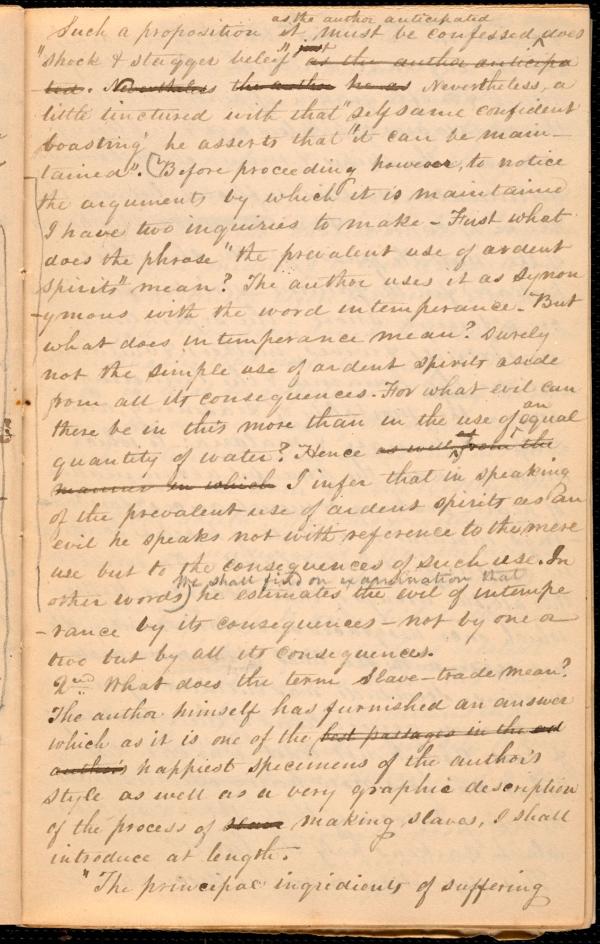 as the author anticipated
Such a proposition it must be confessed does
"shock & stagger belief" just as the author anticipa
ted. Nevertheless the author he as Nevertheless, a
little tinctured with that "self same confident
boasting' he asserts that "it can be main-
tained". (Before proceeding however, to notice
the arguments by which it is maintained
I have two inquiries to make - First what
does the phrase "the prevalent use of ardent
spirits" mean? The author uses it as synon
-ymous with the word intemperance. But
what does intemperance mean? Surely
not the simple use of ardent spirits aside
from all its consequences. For what evil can
there be in this more than in the use of an equal
quantity of water? Hence as well as from the
manner in which I infer that in speaking
of the prevalent use of ardent spirits as an
evil he speaks not with reference to the mere
use but to the consequences of such use. In
We shall find on examination that
other words) he estimates the evil of intempe
-rance by its consequences - not by one or
two but by all its consequences.
2nd What does the term Slave-trade mean?
The author himself has furnished an answer
which as it is one of the best passages in the
author's happiest specimens of the author's
style as well as a very graphic description
of the process of slave making slaves, I shall
introduce at length.
"The principal ingridients of suffering